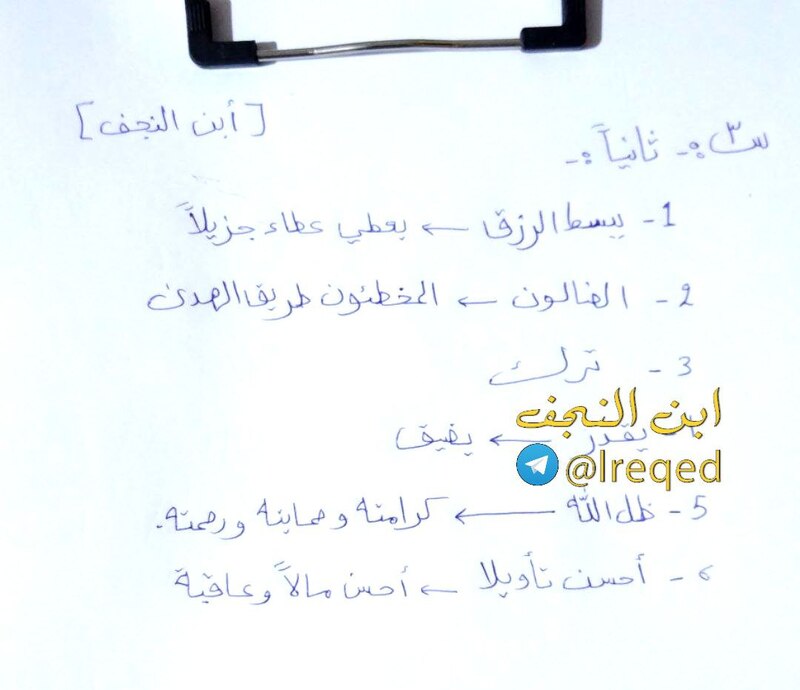 [أبن النجف]
س٣:- ثانياً :-
1- يبسط الرزق ← يعطي عطاء جزيلاً
2- الضالون ← المخطئون طريق الهدى
3- ترك
ابن النجف
يقدر ← يضيق
@lreqed
5- ظل الله ← كرامته وحمايته ورحمته.
6- أحسن تأويلا ← أحسن مالاً وعاقبة